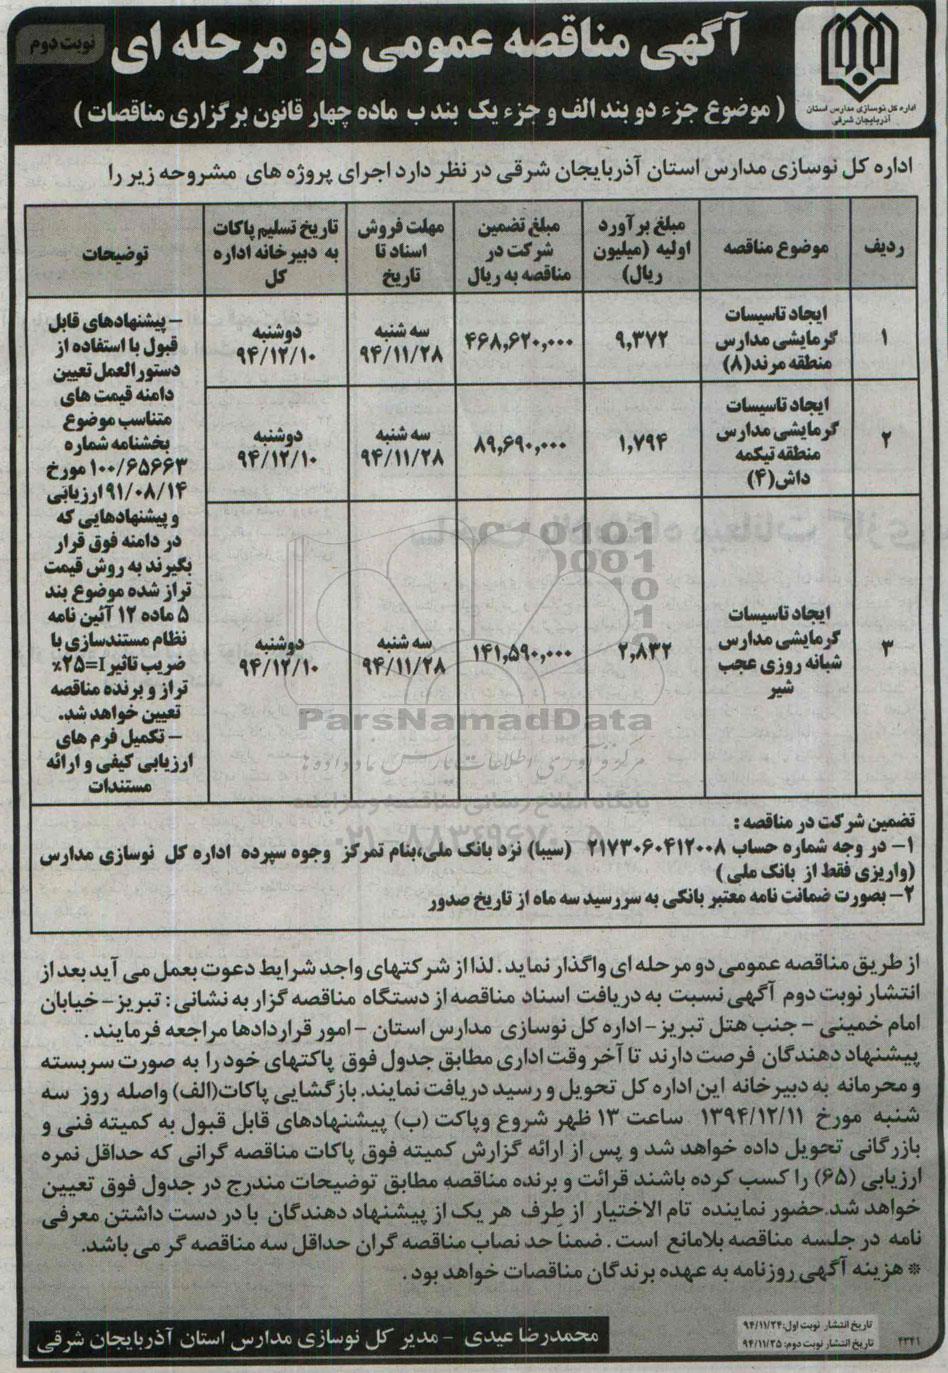 آگهی مناقصه عمومی دو مرحله ای
نوبت دوم
اداره کل نوسازی مدارس استان
آذربایجان شرقی
( موضوع جزء دو بند الف و جزء یک بند ب ماده چهار قانون برگزاری مناقصات )
اداره کل نوسازی مدارس استان آذربایجان شرقی در نظر دارد اجرای پروژه های مشروحه زیر را
ردیف
موضوع مناقصه
مبلغ برآورد
اولیه (میلیون
ریال)
مبلغ تضمین
شرکت در
مناقصه به ریال
مهلت فروش
اسناد تا
تاریخ
تاریخ تسلیم پاکات
به دبیرخانه اداره
کل
توضیحات
۱
ایجاد تاسیسات
گرمایشی مدارس
منطقه مرند(۸)
۹,۳۷۲
۴۶۸,۶۲۰,۰۰۰
سه شنبه
۹۴/۱۱/۲۸
دوشنبه
۹۴/۱۲/۱۰
۲
ایجاد تاسیسات
گرمایشی مدارس
منطقه تیکمه
داش(۴)
۱,۷۹۴
۸۹,۶۹۰,۰۰۰
سه شنبه
۹۴/۱۱/۲۸
دوشنبه
۹۴/۱۲/۱۰
۳
ایجاد تاسیسات
گرمایشی مدارس
شبانه روزی عجب
شیر
۲,۸۳۲
۱۴۱,۵۹۰,۰۰۰
سه شنبه
۹۴/۱۱/۲۸
دوشنبه
۹۴/۱۲/۱۰
- پیشنهادهای قابل
قبول با استفاده از
دستورالعمل تعیین
دامنه قیمت های
متناسب موضوع
بخشنامه شماره
۱۰۰/۶۵۶۶۳ مورخ
۹۱/۰۸/۱۴ ارزیابی
و پیشنهادهایی که
در دامنه فوق قرار
بگیرند به روش قیمت
تراز شده موضوع بند
۵ ماده ۱۲ آئین نامه
نظام مستندسازی با
ضریب تاثیر I=۲۵٪
تراز و برنده مناقصه
تعیین خواهد شد.
- تکمیل فرم های
ارزیابی کیفی و ارائه
مستندات
ParsNamadData
مرکز فرآوری اطلاعات پارس نماد داده ها
پایگاه اطلاع رسانی مناقصه و مزایده
۰۲۱-۸۸۳۴۹۶۷۰-۵
تضمین شرکت در مناقصه :
۱- در وجه شماره حساب ۲۱۷۳۰۶۰۴۱۲۰۰۸ (سیبا) نزد بانک ملی،بنام تمرکز وجوه سپرده اداره کل نوسازی مدارس
(واریزی فقط از بانک ملی )
۲- بصورت ضمانت نامه معتبر بانکی به سررسید سه ماه از تاریخ صدور
از طریق مناقصه عمومی دو مرحله ای واگذار نماید . لذا از شرکتهای واجد شرایط دعوت بعمل می آید بعد از
انتشار نوبت دوم آگهی نسبت به دریافت اسناد مناقصه از دستگاه مناقصه گزار به نشانی : تبریز - خیابان
امام خمینی - جنب هتل تبریز - اداره کل نوسازی مدارس استان - امور قراردادها مراجعه فرمایند .
پیشنهاد دهندگان فرصت دارند تا آخر وقت اداری مطابق جدول فوق پاکتهای خود را به صورت سربسته
و محرمانه به دبیرخانه این اداره کل تحویل و رسید دریافت نمایند. بازگشایی پاکات(الف) واصله روز سه
شنبه مورخ ۱۳۹۴/۱۲/۱۱ ساعت ۱۳ ظهر شروع وپاکت (ب) پیشنهادهای قابل قبول به کمیته فنی و
بازرگانی تحویل داده خواهد شد و پس از ارائه گزارش کمیته فوق پاکات مناقصه گرانی که حداقل نمره
ارزیابی (۶۵) را کسب کرده باشند قرائت و برنده مناقصه مطابق توضیحات مندرج در جدول فوق تعیین
خواهد شد.حضور نماینده تام الاختیار از طرف هر یک از پیشنهاد دهندگان با در دست داشتن معرفی
نامه در جلسه مناقصه بلامانع است . ضمنا حد نصاب مناقصه گران حداقل سه مناقصه گر می باشد.
* هزینه آگهی روزنامه به عهده برندگان مناقصات خواهد بود .
تاریخ انتشار نوبت اول: ۹۴/۱۱/۲۴
تاریخ انتشار نوبت دوم: ۹۴/۱۱/۲۵
۴۳۴۱
محمدرضا عیدی - مدیر کل نوسازی مدارس استان آذربایجان شرقی